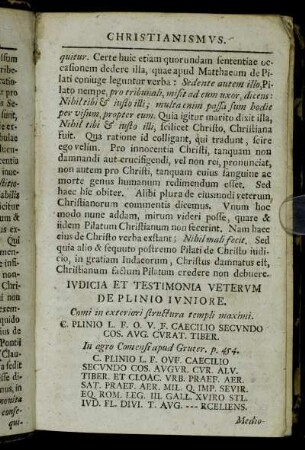 CHRISTIANISMVS.
quitur. Certe huic etiam quorundam sententiae oc-
casionem dedere illa, quae apud Matthaeum de Pi-
lati coniuge leguntur verba: Sedente autem illo, Pi-
lato nempe, pro tribunali, misit ad eum uxor, dicens:
Nihil tibi & iusto illi; multa enim passa sum hodie
per visum, propter eum. Quia igitur marito dixit illa,
Nihil tibi & iusto illi, scilicet Christo, Christiana
fuit. Qua ratione id colligant, qui tradunt, scire
ego velim. Pro innocentia Christi, tanquam non
damnandi aut crucifigendi, vel non rei, pronunciat,
non autem pro Christi, tanquam cuius sanguine ac
morte genus humanum redimendum esset. Sed
haec hic obiter. Alibi plura de eiusmodi veterum,
Christianorum commentis dicemus. Vnum hoc
modo nunc addam, mirum videri posse, quare &
iidem Pilatum Christianum non fecerint. Nam haec
eius de Christo verba exstant: Nihil mali fecit. Sed
quia alio & sequuto postremo Pilati de Christo iudi-
cio, in gratiam Iudaeorum, Christus damnatus est,
Christianum factum Pilatum credere non debuere.
IVDICIA ET TESTIMONIA VETERVM
DE PLINIO IVNIORE.
Comi in exteriori structura templi maximi.
C. PLINIO L. F. O. V. F. CAECILIO SECVNDO
COS. AVG. CVRAT. TIBER.
In agro Comensi apud Gruter. p. 454.
C. PLINIO L. F. OVF. CAECILIO
SECVNDO COS. AVGVR. CVR. ALV.
TIBER. ET CLOAC. VRB. PRAEF. AER.
SAT. PRAEF. AER. MIL. Q. IMP. SEVIR.
EQ. ROM. LEG. III. GALL. XVIRO STL.
IVD. FL. DIVI. T. AVG. --- RCELIENS.
Medio-